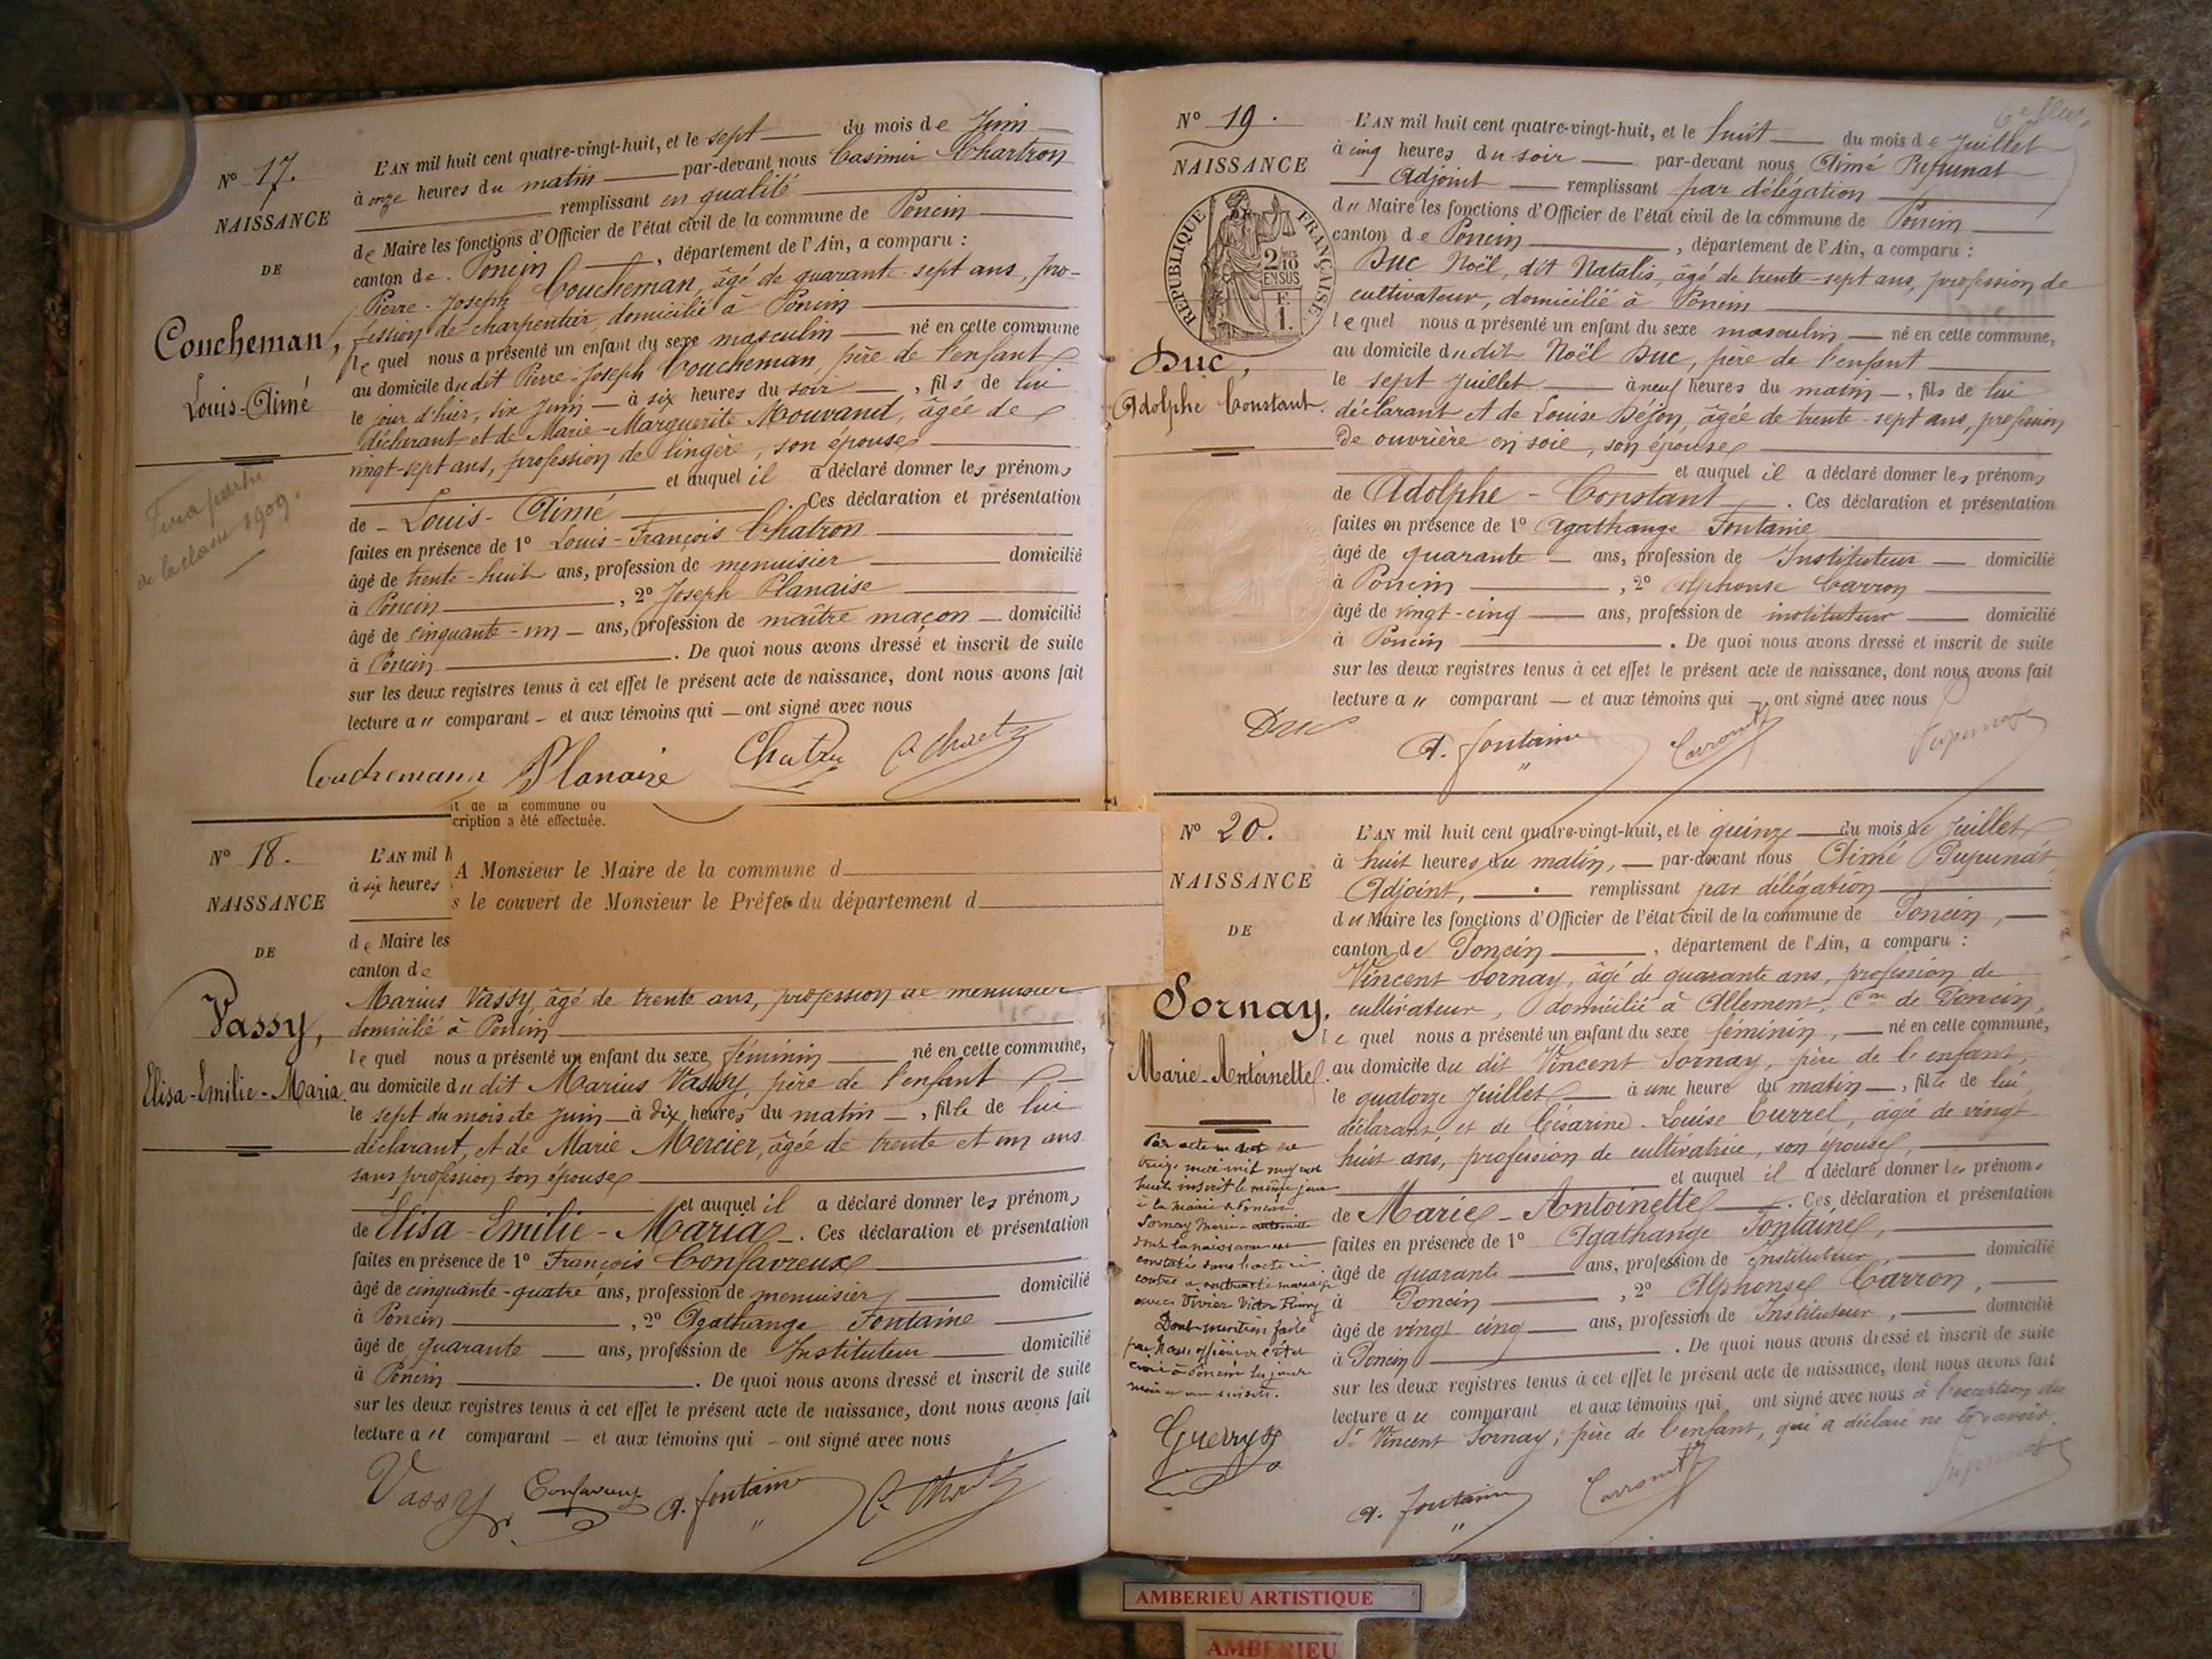 Nº 17.
NAISSANCE
DE
Coucheman,
Louis-Aimé
Fera partie
de la classe 1909.
L'AN mil huit cent quatre-vingt-huit, et le sept du mois de Juin
à onze heures du matin par-devant nous Casimir Chartron
remplissant en qualité
de Maire les fonctions d'Officier de l'état civil de la commune de Poncin
canton de Poncin, département de l'Ain, a comparu :
Pierre-Joseph Coucheman, âgé de quarante-sept ans, pro-
fession de charpentier, domicilié à Poncin
lequel nous a présenté un enfant du sexe masculin né en cette commune
au domicile dudit Pierre-Joseph Coucheman, père de l'enfant
le jour d'hier, six Juin à six heures du soir, fils de lui
déclarant et de Marie-Marguerite Mouvand, âgée de
vingt-sept ans, profession de lingère, son épouse
et auquel il a déclaré donner les prénoms
de Louis-Aimé. Ces déclaration et présentation
faites en présence de 1º Louis-François Chatron
âgé de trente-huit ans, profession de menuisier domicilié
à Poncin, 2º Joseph Planaise
âgé de cinquante-un ans, profession de maître maçon domicilié
à Poncin. De quoi nous avons dressé et inscrit de suite
sur les deux registres tenus à cet effet le présent acte de naissance, dont nous avons fait
lecture au comparant et aux témoins qui ont signé avec nous
Coucheman Planaise Chatron
Nº 18.
NAISSANCE
DE
Vassy,
Elisa-Emilie-Maria.
t de la commune ou
cription a été effectuée.
A Monsieur le Maire de la commune d
s le couvert de Monsieur le Préfet du département d
L'AN mil h
à six heures
de Maire les
canton de
Marius Vassy, âgé de trente ans, profession de menuisier
domicilié à Poncin
lequel nous a présenté un enfant du sexe féminin né en cette commune,
au domicile dudit Marius Vassy, père de l'enfant
le sept du mois de juin à dix heures du matin, fille de lui
déclarant, et de Marie Mercier, âgée de trente et un ans
sans profession son épouse
et auquel il a déclaré donner les prénoms
de Elisa-Emilie-Maria. Ces déclaration et présentation
faites en présence de 1º François Confavreux
âgé de cinquante-quatre ans, profession de menuisier domicilié
à Poncin, 2º Agathange Fontaine
âgé de quarante ans, profession de Instituteur domicilié
à Poncin. De quoi nous avons dressé et inscrit de suite
sur les deux registres tenus à cet effet le présent acte de naissance, dont nous avons fait
lecture au comparant et aux témoins qui ont signé avec nous
Vassy Confavreux A. Fontaine
Nº 19.
NAISSANCE
RÉPUBLIQUE FRANÇAISE
2 10
EN SUS
F.
1.
Duc,
Adolphe Constant.
L'AN mil huit cent quatre-vingt-huit, et le huit du mois de Juillet
à cinq heures du soir par-devant nous Aimé Pupunat
Adjoint remplissant par délégation
du Maire les fonctions d'Officier de l'état civil de la commune de Poncin
canton de Poncin, département de l'Ain, a comparu :
Duc Noël, dit Natalis, âgé de trente-sept ans, profession de
cultivateur, domicilié à Poncin
lequel nous a présenté un enfant du sexe masculin né en cette commune,
au domicile dudit Noël Duc, père de l'enfant
le sept Juillet à neuf heures du matin, fils de lui
déclarant et de Louise Déjon, âgée de trente-sept ans, profession
de ouvrière en soie, son épouse
et auquel il a déclaré donner les prénoms
de Adolphe-Constant. Ces déclaration et présentation
faites en présence de 1º Agathange Fontaine
âgé de quarante ans, profession de Instituteur domicilié
à Poncin, 2º Alphonse Carron
âgé de vingt-cinq ans, profession de instituteur domicilié
à Poncin. De quoi nous avons dressé et inscrit de suite
sur les deux registres tenus à cet effet le présent acte de naissance, dont nous avons fait
lecture au comparant et aux témoins qui ont signé avec nous
Duc A. Fontaine Carron Pupunat
Nº 20.
NAISSANCE
DE
Sornay,
Marie-Antoinette.
Par acte en date du
treize mil neuf cent
huit inscrit le même jour
à la mairie de Poncin
Sornay Marie-Antoinette
dont la naissance est
constatée dans l'acte ci
contre a contracté mariage
avec Vivier Victor
Dont mention faite
par Nous officier de l'état
civil à Poncin les jour
mois et an susdits.
Guerry
L'AN mil huit cent quatre-vingt-huit, et le quinze du mois de Juillet
à huit heures du matin, par-devant nous Aimé Pupunat
Adjoint, remplissant par délégation
du Maire les fonctions d'Officier de l'état civil de la commune de Poncin,
canton de Poncin, département de l'Ain, a comparu :
Vincent Sornay, âgé de quarante ans, profession de
cultivateur, domicilié à Allement, Cne de Poncin,
lequel nous a présenté un enfant du sexe féminin, né en cette commune,
au domicile du dit Vincent Sornay, père de l'enfant,
le quatorze Juillet à une heure du matin, fille de lui
déclarant, et de Césarine-Louise Currel, âgée de vingt
huit ans, profession de cultivatrice, son épouse,
et auquel il a déclaré donner les prénoms
de Marie-Antoinette. Ces déclaration et présentation
faites en présence de 1º Agathange Fontaine,
âgé de quarante ans, profession de Instituteur, domicilié
à Poncin, 2º Alphonse Carron,
âgé de vingt-cinq ans, profession de Instituteur, domicilié
à Poncin. De quoi nous avons dressé et inscrit de suite
sur les deux registres tenus à cet effet le présent acte de naissance, dont nous avons fait
lecture au comparant et aux témoins qui ont signé avec nous à l'exception du
Sr Vincent Sornay, père de l'enfant, qui a déclaré ne le savoir.
A. Fontaine Carron Pupunat
AMBERIEU ARTISTIQUE
AMBERIEU